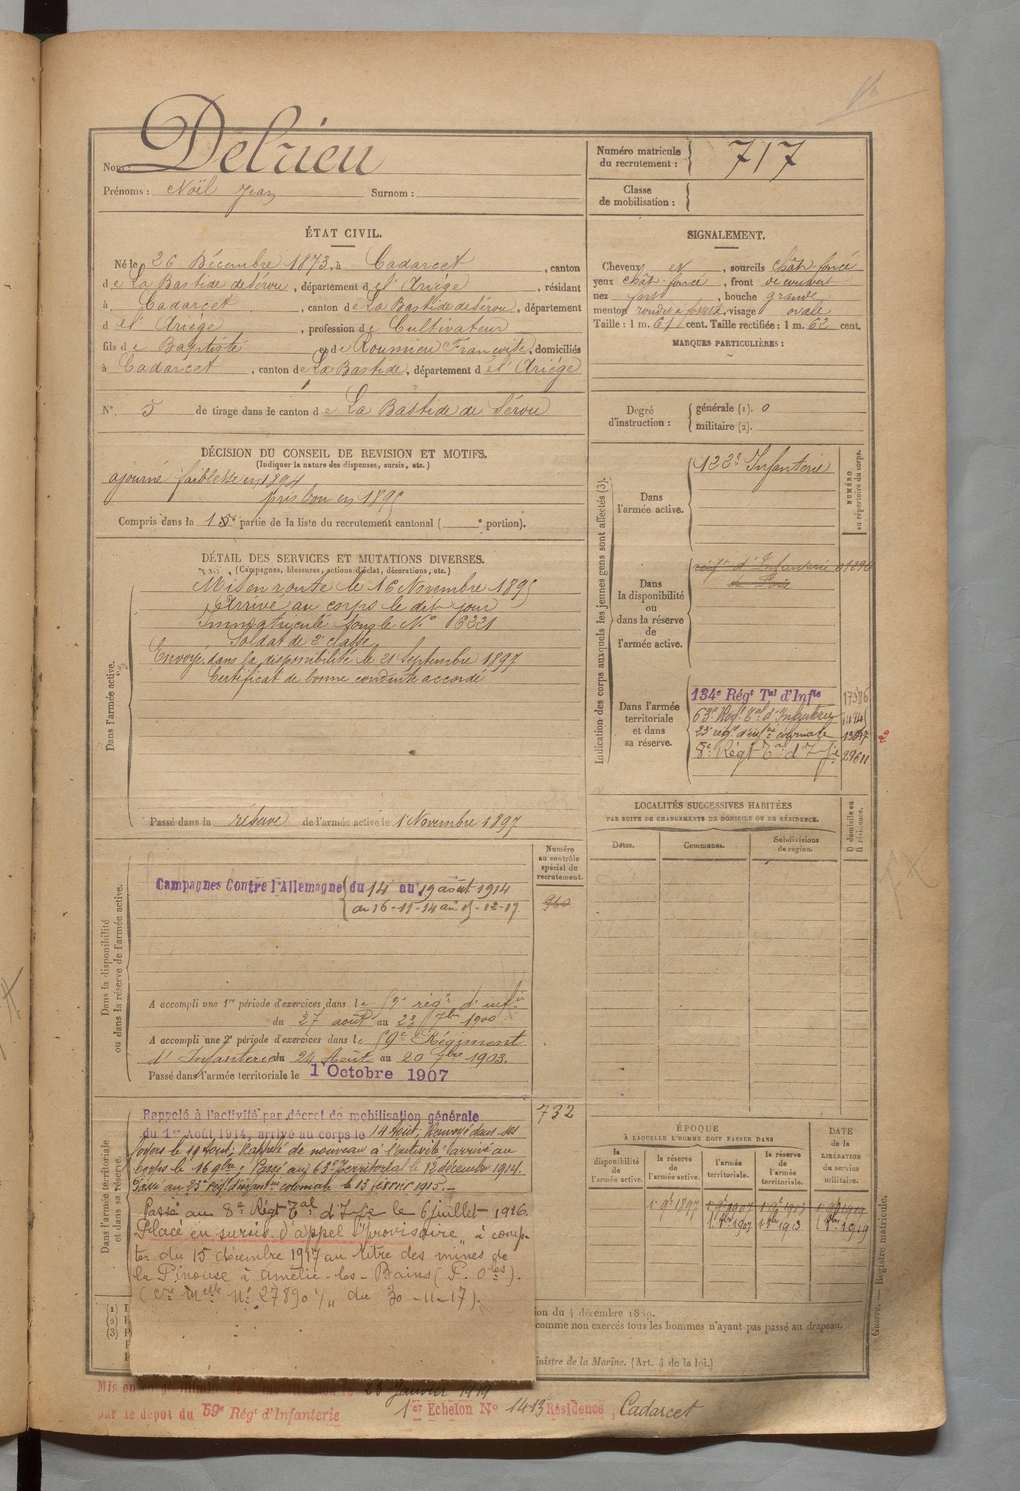 Nom : Delrieu
Prénoms : Noël Jean Surnom :
Numéro matricule du recrutement : 717
Classe de mobilisation :
ÉTAT CIVIL.
Né le 26 Décembre 1873, à Cadarcet, canton
de La Bastide de Sérou, département de l'Ariège, résidant
à Cadarcet, canton de La Bastide de Sérou, département
de l'Ariège, profession de Cultivateur
fils de Baptiste et de Roumieu Françoise, domiciliés
à Cadarcet, canton de La Bastide, département de l'Ariège
N° 5 de tirage dans le canton de La Bastide de Sérou
SIGNALEMENT.
Cheveux et, sourcils chât. foncé
yeux chât. foncé, front découvert
nez fort, bouche grande
menton rond à fossette, visage ovale
Taille : 1 m. 61 cent. Taille rectifiée : 1 m. 62 cent.
MARQUES PARTICULIÈRES :
Degré d'instruction : générale (1). 0
militaire (2).
DÉCISION DU CONSEIL DE REVISION ET MOTIFS.
(Indiquer la nature des dispenses, sursis, etc.)
ajourné faiblesse en 1894
pris bon en 1895
Compris dans la 1e partie de la liste du recrutement cantonal ( e portion).
DÉTAIL DES SERVICES ET MUTATIONS DIVERSES.
(Campagnes, blessures, actions d'éclat, décorations, etc.)
Dans l'armée active.
Mis en route le 16 Novembre 1895
Arrivé au corps le dit jour
Immatriculé sous le N° 16331
Soldat de 2e classe
Envoyé dans la disponibilité le 21 Septembre 1897
Certificat de bonne conduite accordé
Passé dans la réserve de l'armée active le 1 Novembre 1897
Indication des corps auxquels les jeunes gens sont affectés (3).
NUMÉRO au répertoire du corps.
Dans l'armée active.
122e Infanterie
Dans la disponibilité ou dans la réserve de l'armée active.
regt d'Infanterie
de Foix
Dans l'armée territoriale et dans sa réserve.
134e Régt Tal d'Infie
63e Regt Tal d'Infanterie
23e regt d'infie coloniale
8e Régt Tal d'Infie 29611
LOCALITÉS SUCCESSIVES HABITÉES
PAR SUITE DE CHANGEMENTS DE DOMICILE OU DE RÉSIDENCE.
Dates. Communes. Subdivisions de région. D domicile ou R résidence.
Dans la disponibilité ou dans la réserve de l'armée active.
Numéro au contrôle spécial du recrutement.
960
Campagnes Contre l'Allemagne du 14 au 19 août 1914
du 16-11-14 au 15-12-17
A accompli une 1re période d'exercices dans le 59e régt d'infie
du 27 août au 23 7bre 1900
A accompli une 2e période d'exercices dans le 59e Régiment
d'Infanterie du 24 Août au 20 7bre 1903.
Passé dans l'armée territoriale le 1 Octobre 1907
732
Dans l'armée territoriale et dans sa réserve.
Rappelé à l'activité par décret de mobilisation générale
du 1er Août 1914, arrivé au corps le 14 Août, Renvoyé dans ses
foyers le 19 Août, Rappelé de nouveau à l'activité arrivé au
Corps le 16 9bre, Passé au 63e Territorial le 12 décembre 1914.
Passé au 23e régt d'infant coloniale le 13 février 1915.
Passé au 8e Régt Tal d'Ifie le 6 juillet 1916.
Placé en sursis d'appel "Provisoire" à comp-
ter du 15 décembre 1917 au titre des mines de
la Pinouse à Amélie-les-Bains (P. Oles).
(Cre Melle N° 27890 1/11 du 30-11-17).
ÉPOQUE
À LAQUELLE L'HOMME DOIT PASSER DANS
la disponibilité de l'armée active. la réserve de l'armée active. l'armée territoriale. la réserve de l'armée territoriale.
DATE de la LIBÉRATION du service militaire.
1 9e 1897 1 9e 1907 1 9e 1913 1 9e 1919
1 8bre 1907 1 8bre 1913 1 8bre 1919
(1)
(2)
(3)
ion du 4 décembre 1889.
comme non exercés tous les hommes n'ayant pas passé au drapeau.
inistre de la Marine. (Art. 4 de la loi.)
Guerre. — Registre matricule.
23 Janvier 1919
par le dépôt du 59e Régt d'Infanterie 1er Echelon N° 1413 Résidence Cadarcet